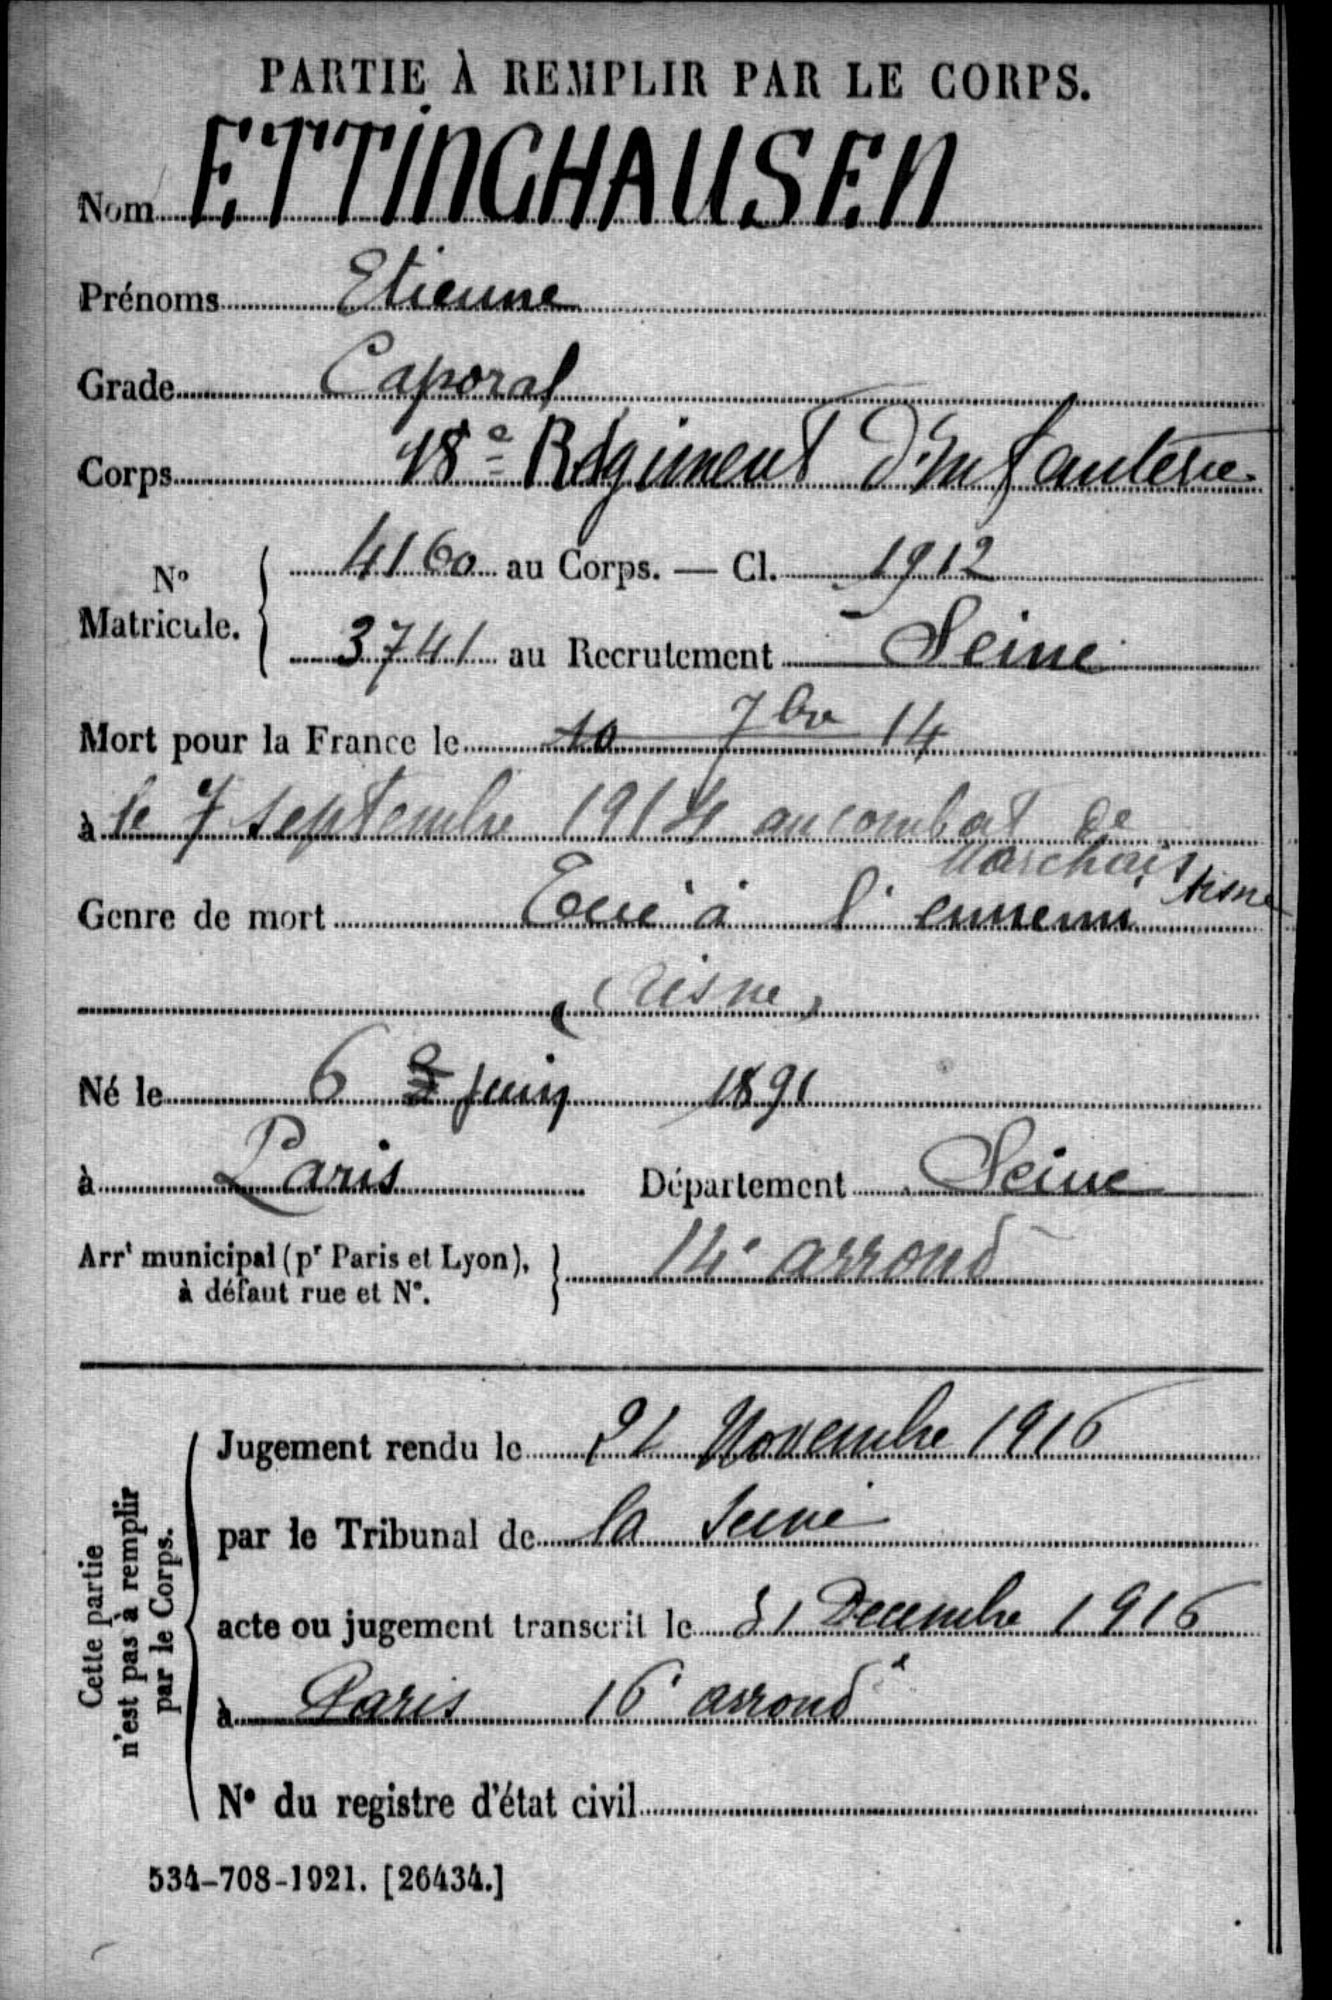 PARTIE À REMPLIR PAR LE CORPS.
Nom ETTINGHAUSEN
Prénoms Etienne
Grade Caporal
Corps 18e Régiment d'Infanterie
No Matricule. 4160 au Corps. — Cl. 1912
3741 au Recrutement Seine
Mort pour la France le 10 7bre 14
à le 7 septembre 1914 au combat de
Marchais Aisne
Genre de mort Tué à l'ennemi
(Aisne)
Né le 6 Juin 1891
à Paris Département Seine
Arrt municipal (pr Paris et Lyon), à défaut rue et No. 14e arrond
Cette partie n'est pas à remplir par le Corps.
Jugement rendu le 21 Novembre 1916
par le Tribunal de la Seine
acte ou jugement transcrit le 31 Decembre 1916
à Paris 16e arrondt
No du registre d'état civil
534-708-1921. [26434.]